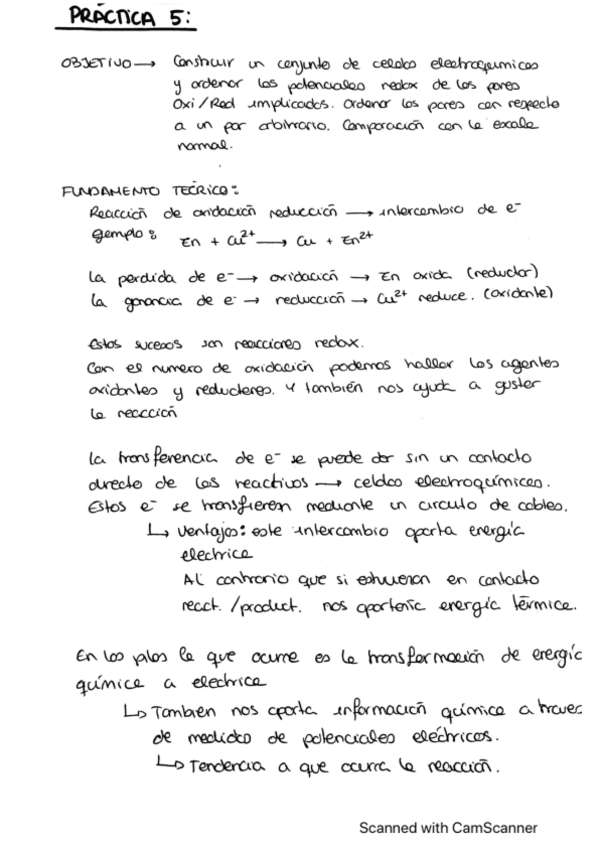 PRÁCTICA 5:
OBJETIVO → Construir un conjunto de celdas electroquímicas
y ordenar los potenciales redox de los pares
Oxi/Red implicados. Ordenar los pares con respecto
a un par arbitrario. Comparación con la escala
normal.
FUNDAMENTO TEÓRICO:
Reacción de oxidación reducción → intercambio de e⁻
Ejemplo: Zn + Cu²⁺ → Cu + Zn²⁺
La perdida de e⁻ → oxidación → Zn oxida (reductor)
La ganancia de e⁻ → reducción → Cu²⁺ reduce. (oxidante)
Estos sucesos son reacciones redox.
Con el numero de oxidación podemos hallar los agentes
oxidantes y reductores. Y también nos ayuda a ajustar
la reacción
La transferencia de e⁻ se puede dar sin un contacto
directo de los reactivos → celdas electroquímicas.
Estos e⁻ se transfieren mediante un circuito de cables.
↳ Ventajas: este intercambio aporta energía
electrica
Al contrario que si estuvieran en contacto
react./product. nos aportaría energía térmica.
En las pilas lo que ocurre es la transformación de energía
química a electrica
↳ También nos aporta información química a traves
de medida de potenciales eléctricos.
↳ Tendencia a que ocurra la reacción.
Scanned with CamScanner